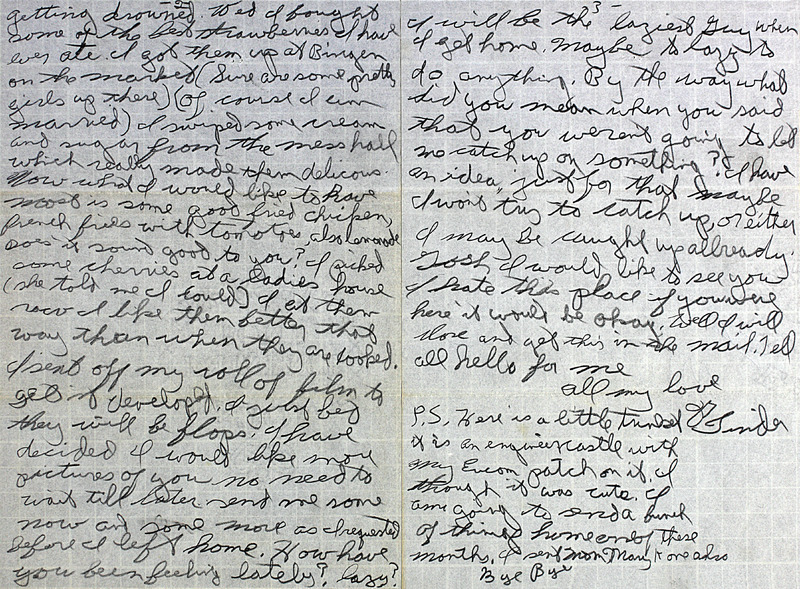 -2-
getting drowned. Wed I bought
some of the best strawberries I have
ever ate. I got them up at Bingen
on the market (Sure are some pretty
girls up there) (Of course I am
married) I swiped some cream
and sugar from the mess hall
which really made them delicous.
Now what I would like to have
most is some good fried chicken,
french fries with tomatoes, also lemonade
does it sound good to you? I picked
some cherries at a ladies house
(she told me I could) I et them
raw I like them better that
way than when they are cooked.
I sent off my roll of film to
get it developed. I just bet
they will be flops. I have
decided I would like more
pictures of you no need to
wait till later send me some
now and some more as I requested
before I left home. How have
you been feeling lately? lazy?
-3-
I will be the laziest Guy when
I get home. Maybe to lazy to
do anything. By the way what
did you mean when you said
that you werent going to let
me catch up on something? I have
an idea, just for that maybe
I wont try to catch up, or either
I may be caught up allready.
Gosh I would like to see you
I hate this place if you were
here it would be okay. Well I will
close and get this in the mail. Tell
all hello for me
all my love
P.S. Here is a little trinket
it is an engineer castle with
my Eucom patch on it. I
though it was cute. I
am going to send a bunch
of things home one of these
months. I sent Mom, Mary K one also
Bye Bye